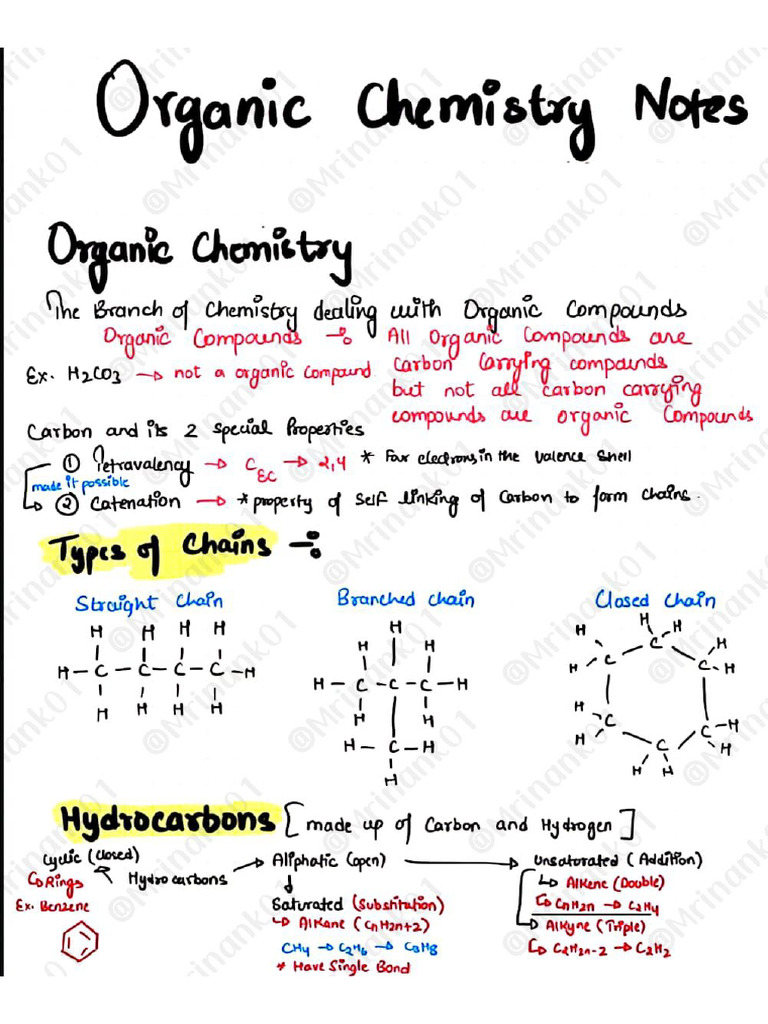 Organic Chemistry Notes
Organic Chemistry
The Branch of Chemistry dealing with Organic Compounds
Organic Compounds → All Organic Compounds are
carbon carrying compounds
but not all carbon carrying
compounds are organic compounds
Ex. H2CO3 → not a organic compound
Carbon and its 2 special Properties
① Tetravalency → C EC → 2,4 * Four electrons in the valence shell
made it possible
② Catenation → * property of self linking of Carbon to form chains.
Types of Chains
Straight Chain
H H H H
H-C-C-C-C-H
H H H H
Branched chain
H
H H
H-C-C-C-H
H H
H-C-H
H
Closed Chain
H H H
H C H
H C C H
H C C H
H C H
H H
Hydrocarbons [made up of Carbon and Hydrogen]
Cyclic (closed)
Rings
Ex. Benzene
Hydrocarbons → Aliphatic (open) → Unsaturated (Addition)
Saturated (Substitution)
Alkane (CnH2n+2)
CH4 → C2H6 → C3H8
* Have Single Bond
Alkene (Double)
CnH2n → C2H4
Alkyne (Triple)
C2H2n-2 → C2H2
@Mrinank01